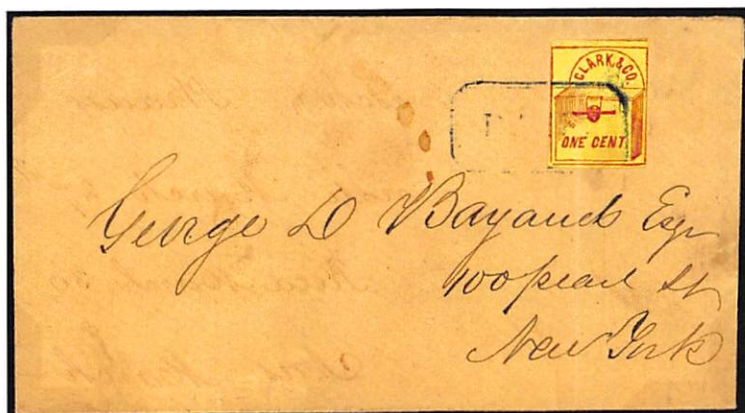 CLARK & CO.
ONE CENT
George D Bayaud Esqr
100 pearl St
New York